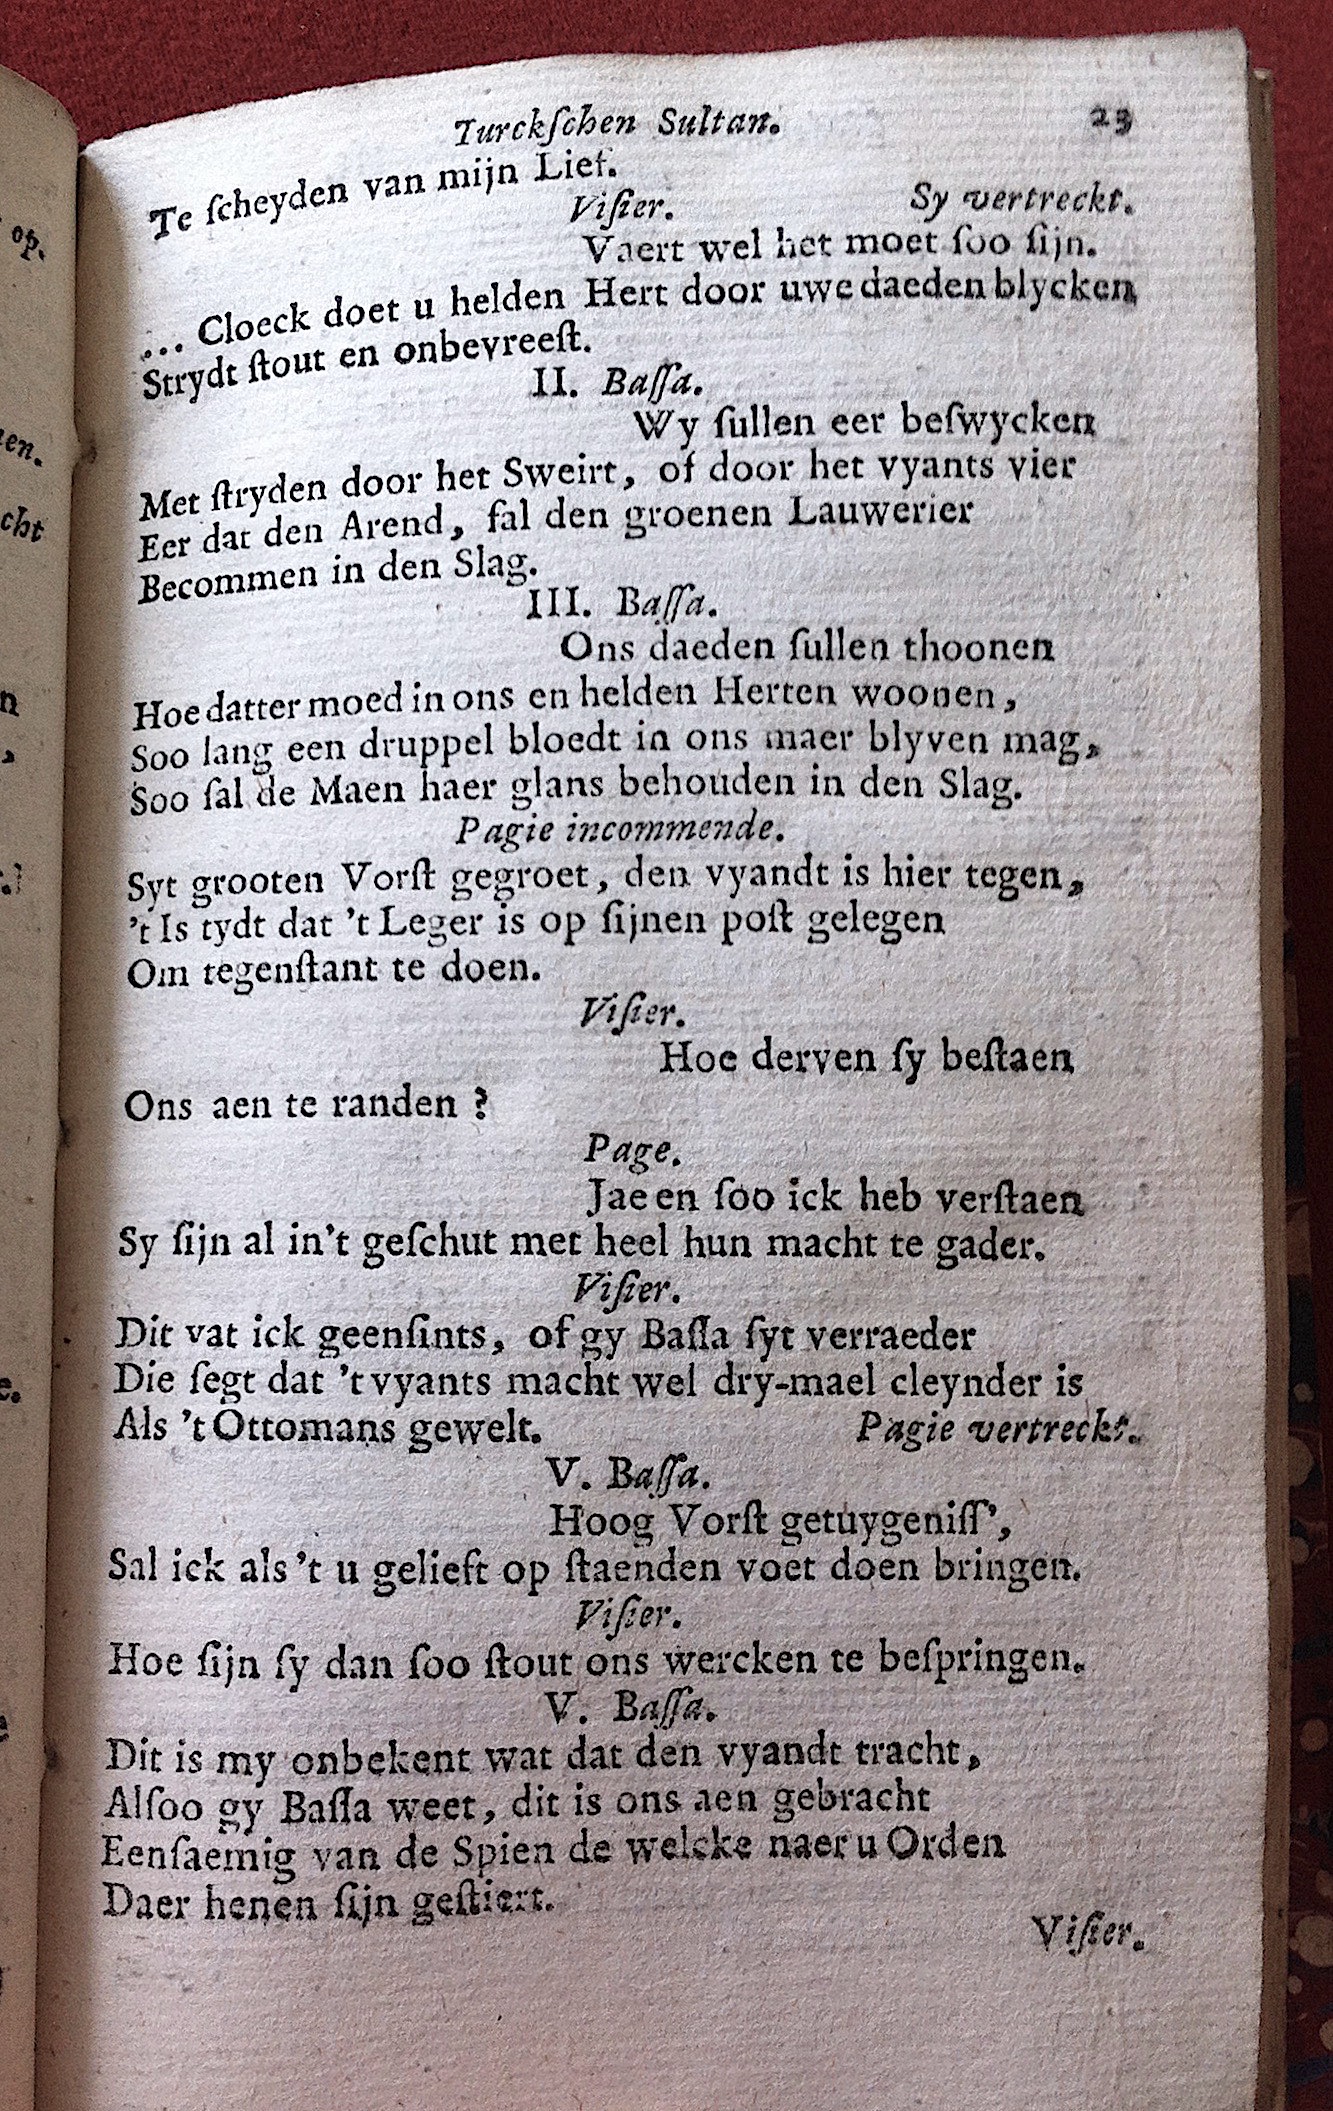 Turckſchen Sultan. 23
Te ſcheyden van mijn Lief.
Viſier. Sy vertreckt.
Vaert wel het moet ſoo ſijn.
... Cloeck doet u helden Hert door uwe daeden blycken
Strydt ſtout en onbevreeſt.
II. Baſſa.
Wy ſullen eer beſwycken
Met ſtryden door het Sweirt, of door het vyants vier
Eer dat den Arend, ſal den groenen Lauwerier
Becommen in den Slag.
III. Baſſa.
Ons daeden ſullen thoonen
Hoe datter moed in ons en helden Herten woonen,
Soo lang een druppel bloedt in ons maer blyven mag,
Soo ſal de Maen haer glans behouden in den Slag.
Pagie incommende.
Syt grooten Vorſt gegroet, den vyandt is hier tegen,
't Is tydt dat 't Leger is op ſijnen poſt gelegen
Om tegenſtant te doen.
Viſier.
Hoe derven ſy beſtaen
Ons aen te randen ?
Page.
Jae en ſoo ick heb verſtaen
Sy ſijn al in't geſchut met heel hun macht te gader.
Viſier.
Dit vat ick geenſints, of gy Baſſa ſyt verraeder
Die ſegt dat 't vyants macht wel dry-mael cleynder is
Als 't Ottomans gewelt. Pagie vertreckt.
V. Baſſa.
Hoog Vorſt getuygeniſſ',
Sal ick als 't u gelieft op ſtaenden voet doen bringen.
Viſier.
Hoe ſijn ſy dan ſoo ſtout ons wercken te beſpringen.
V. Baſſa.
Dit is my onbekent wat dat den vyandt tracht,
Alſoo gy Baſſa weet, dit is ons aen gebracht
Eenſaemig van de Spien de welcke naer u Orden
Daer henen ſijn geſtiert.
Viſier.
op.
en.
cht
n
,
e.